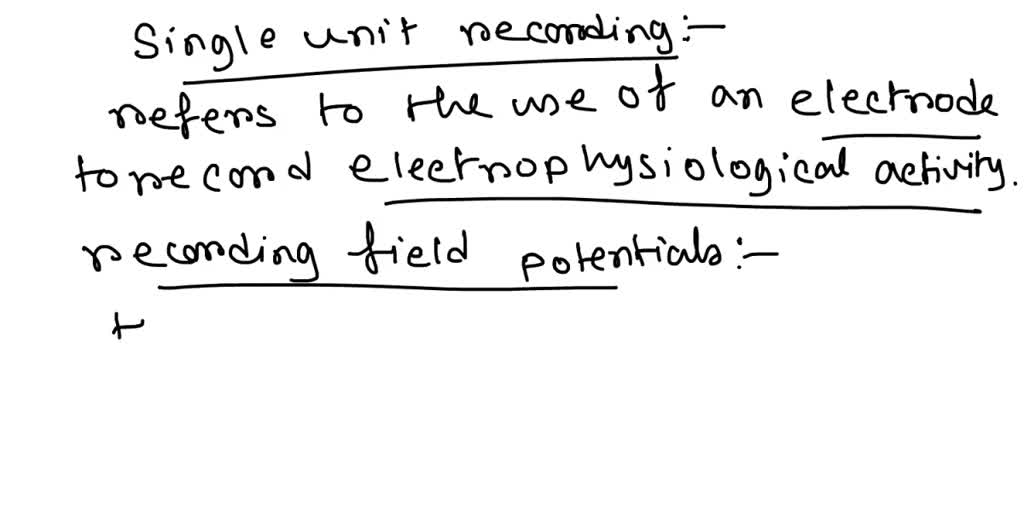 Single unit recording:-
refers to the use of an electrode
to record electrophysiological activity.
recording field potentials:-
t